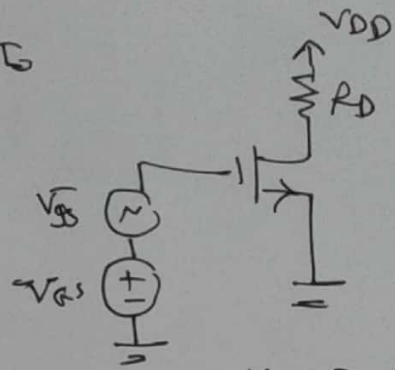 VDD
RD
Vgs
~
VGS
+
−